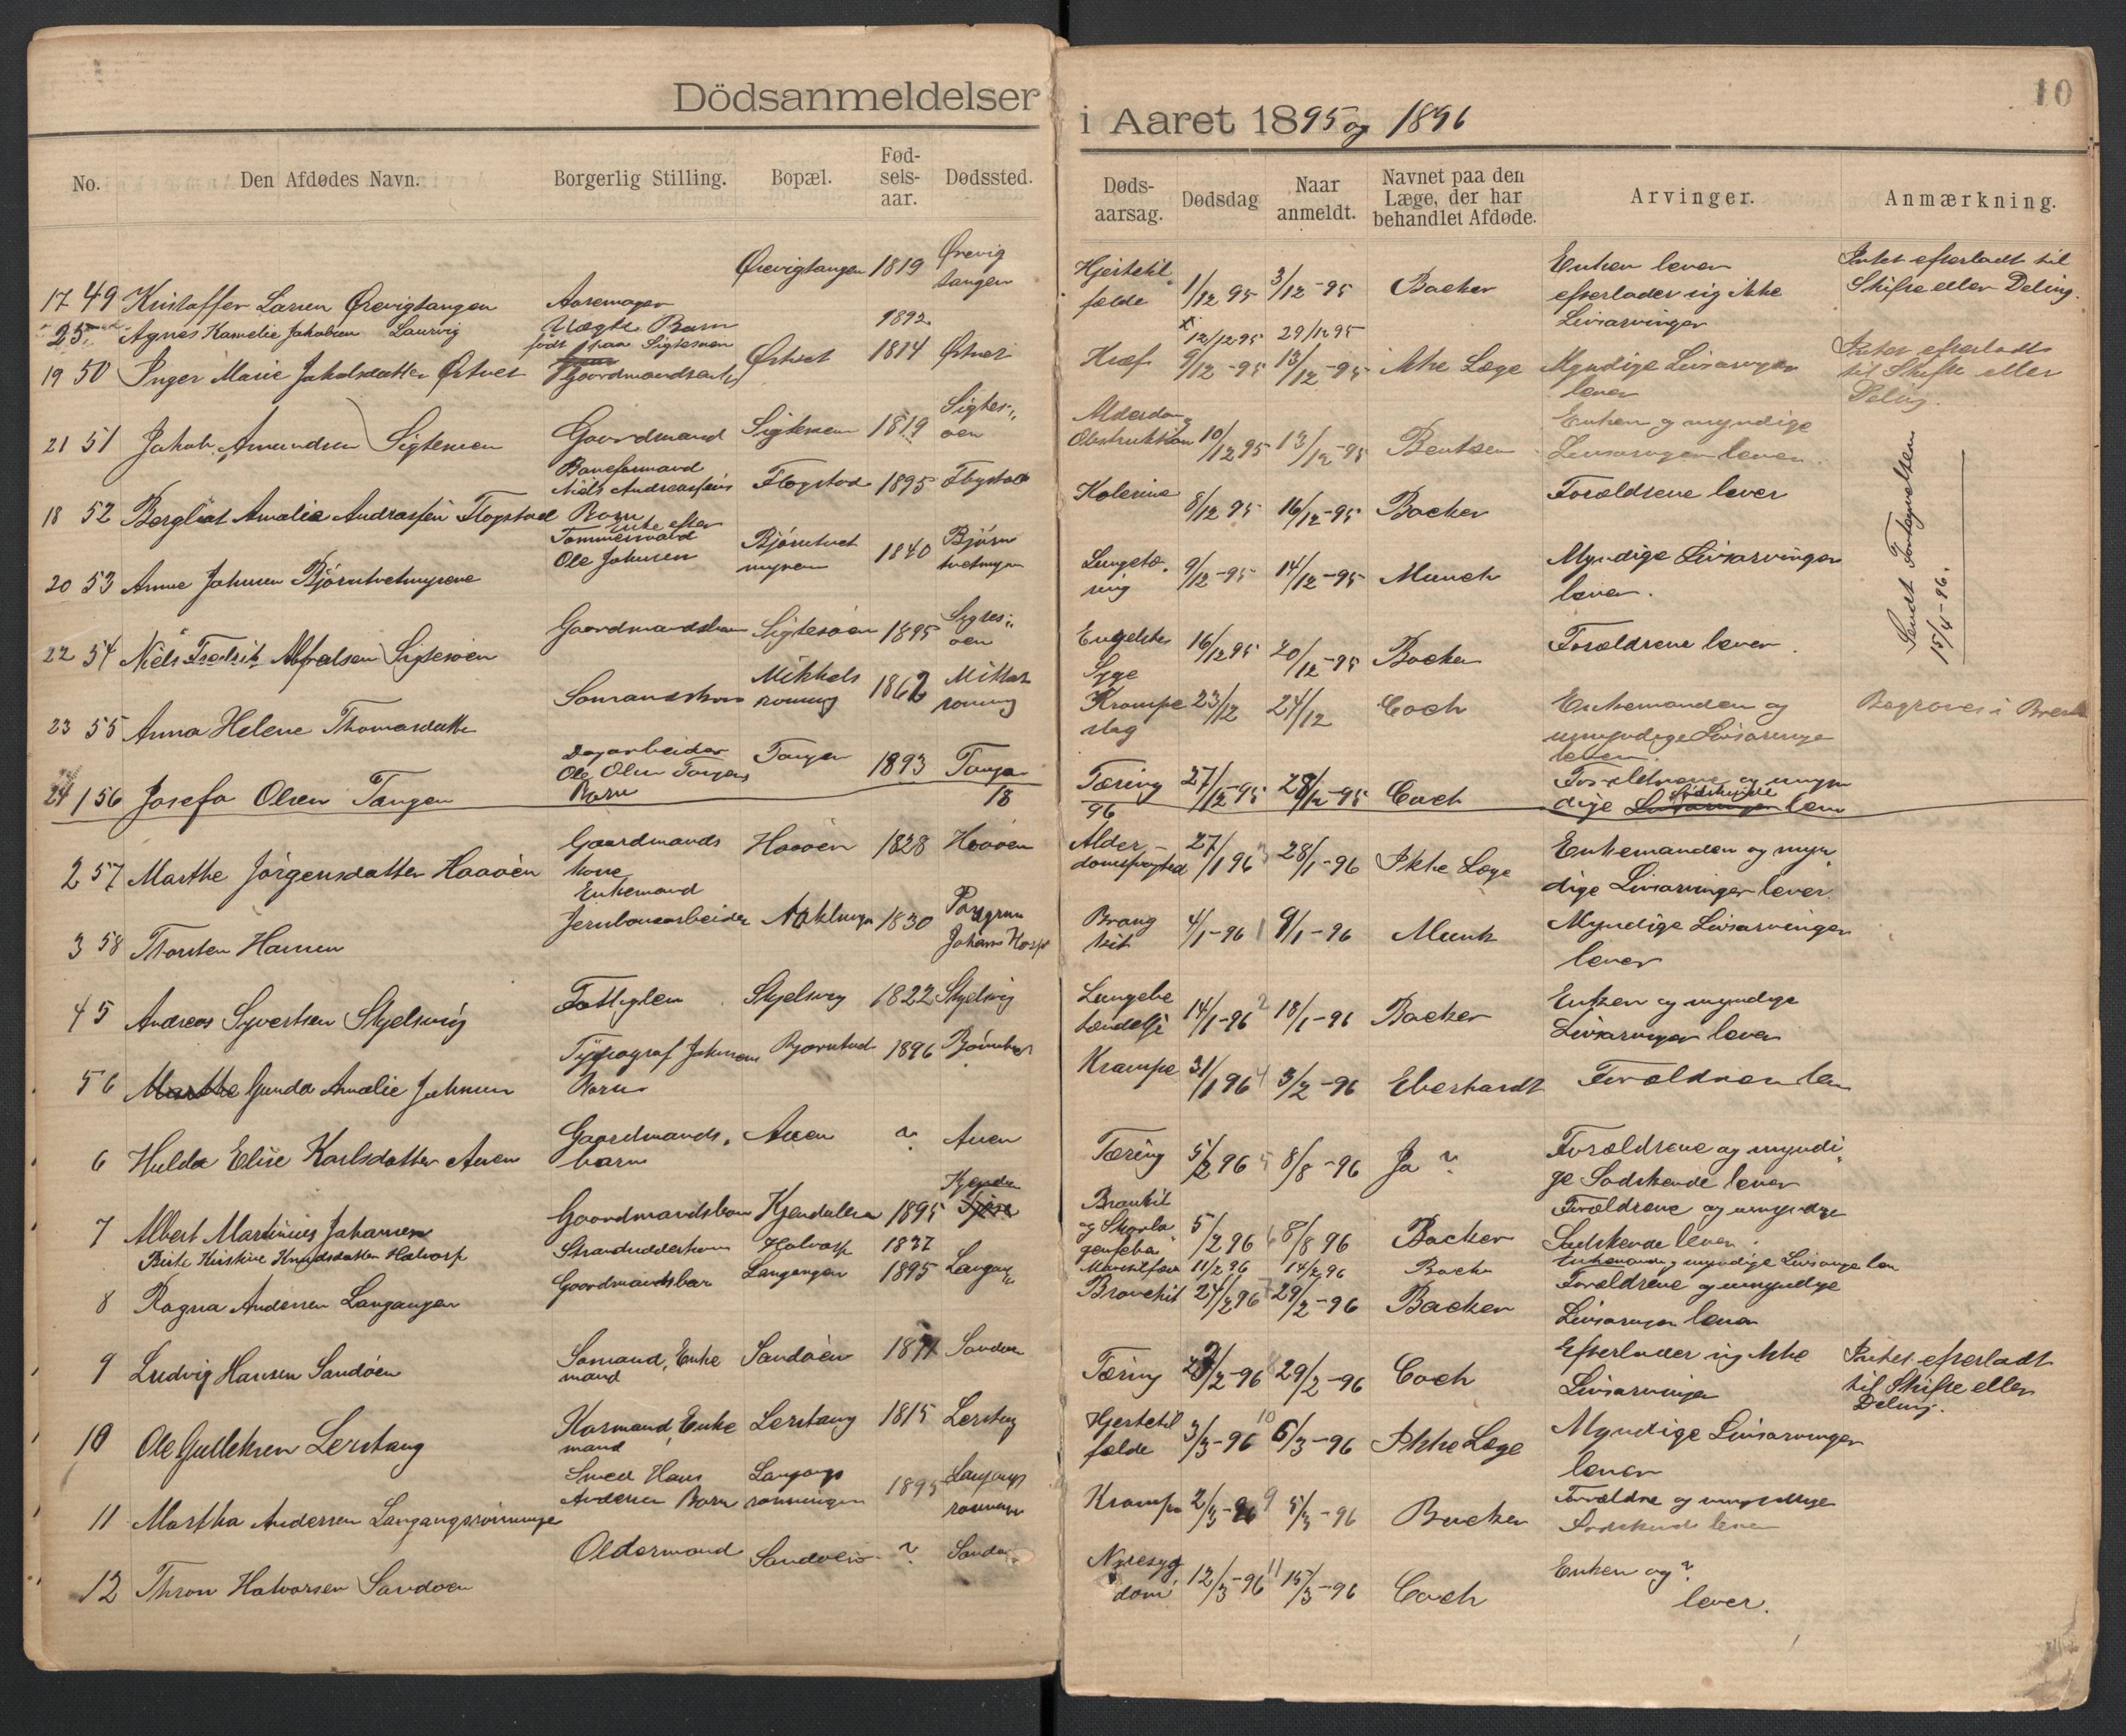 Dödsanmeldelser
i Aaret 1895 og 1896
10
No.
Den Afdødes Navn.
Borgerlig Stilling.
Bopæl.
Fød-
sels-
aar.
Dødssted.
Døds-
aarsag.
Dødsdag
Naar
anmeldt.
Navnet paa den
Læge, der har
behandlet Afdøde.
Arvinger.
Anmærkning.
17 49 Kristoffer Larsen Ørevigtangen Aaremager Ørevigtangen 1819 Ørevig
tangen
Hjertetil
fælde 1/12 95 3/12-95 Backer Enken lever
efterlader sig ikke
Livsarvinger
Intet efterladt til
Skifte eller Deling.
25 Agnes Kamelie Jakobsen Laurvig Uægte Barn
født paa Sigtesøen 1892
12/12 95 29/12 95
19 50 Inger Marie Jakobsdatter Ørtvet Gaardmandsenke Ørtvet 1814 Ørtvet
Kræf 9/12-95 13/12-95 ikke Læge Myndige Livsarvinger
lever
Intet efterladt
til Skifte eller
Deling.
21 51 Jakob Amundsen Sigtesøen Gaardmand Sigtesøen 1819 Sigtes-
øen
Alderdom
Obstruktion 10/12 95 13/12-95 Bentsen Enken og myndige
Livsarvinger lever.
18 52 Bergliot Amalie Andreassen Flogstad Baneformand
Niels Andreassens
Barn Flogstad 1895 Flogstad
Kolerine 8/12 95 16/12-95 Backer Forældrene lever
20 53 Anne Johnsen Bjørntvetmyrene Enke efter
Tømmermand
Ole Johnsen Bjørntvet
myren 1840 Bjørn
tvetmyren
Lungetæ-
ring 9/12-95 14/12-95 Munch Myndige Livsarvinger
lever.
Sendt Fortegnelsen
15/4-96.
22 54 Niels Fredrik Alfredsen Sigtesøen Gaardmandsbarn Sigtesøen 1895 Sigtes-
øen
Engelske
Syge 16/12 95 20/12-95 Backer Forældrene lever.
23 55 Anna Helene Thomasdatter Sømandskone Mikkels
rønning 1862 Mikkels
rønning
Krampe
slag 23/12 24/12 Coch Enkemanden og
umyndige Livsarvinger
lever.
Begraves i
24 1 56 Josefa Olsen Tangen Dagarbeider
Ole Olsen Tangens
Barn Tangen 1893 Tangen
18
Tæring 27/12-95 28/12-95 Coch Forældrene og umyn
dige Livsarvinger Sødskende lever
96
2 57 Marthe Jörgensdatter Haaøen Gaardmands
kone Haaøen 1828 Haaøen
Alder-
domssvaghed 27/1 96 3 28/1-96 Ikke Læge Enkemanden og myn
dige Livsarvinger lever.
3 58 Thorsten Hansen Enkemand
Jernbanearbeider Aaklungen 1830 Porsgrun
Johans Hosp
Brong
kit 4/1-96 1 9/1-96 Munk Myndige Livsarvinger
lever
4 5 Andreas Syvertsen Skjelsvig Fattiglem Skjelsvig 1822 Skjelsvig
Lungebe
tændelse 14/1-96 2 18/1-96 Backer Enken og myndige
Livsarvinger lever
5 6 Marthe Gunda Amalie Johnsen Typograf Johnsens
Barn Bjørntvet 1896 Bjørntvet
Krampe 31/1 96 4 3/2-96 Eberhardt Forældrene lever
6 Hulda Elise Karlsdatter Auen Gaardmands
barn Auen ? Auen
Tæring 5/2 96 5 8/8-96 Ja ? Forældrene og myndi
ge Sødskende lever
7 Albert Martinius Johansen Gaardmandsbarn Kjendalen 1895 Kjendalen
Bronkit
og Skarla
gensfeber 5/2 96 6 8/8 96 Backer Forældrene og umyndige
Sødskende lever.
Birte Kirstine Knudsdatter Halvorsp Strandsidderkone Halvorsp 1837
11/2 96 14/2 96 Backer Enkemanden og myndige Livsarvinger lever
8 Ragna Andersen Langangen Gaardmandsbarn Langangen 1895 Langangen
Bronchit 24/2 96 7 29/2-96 Backer Forældrene og umyndige
Livsarvinger lever
9 Ludvig Hansen Sandøen Sømand, Enke
mand Sandøen 1871 Sandøen
Tæring /2-96 8 29/2-96 Coch Efterlader sig ikke
Livsarvinger
Intet efterladt
til Skifte eller
Deling.
10 Ole Gulleksen Lerstang Kaarmand, Enke
mand Lerstang 1815 Lerstang
Hjertetil
fælde 3/3-96 10 6/3-96 Ikke Læge Myndige Livsarvinger
lever
11 Martha Andersen Langangsrønningen Smed Hans
Andersen Barn Langangs
rønningen 1895 Langangs
rønningen
Krampe 2/3-96 9 5/3-96 Backer Forældre og umyndige
Sødskende lever
12 Thron Halvorsen Sandøen Oldermand Sandøen ? Sandøen
Nyresyg
dom 12/3-96 11 15/3-96 Coch Enken og ?
lever.